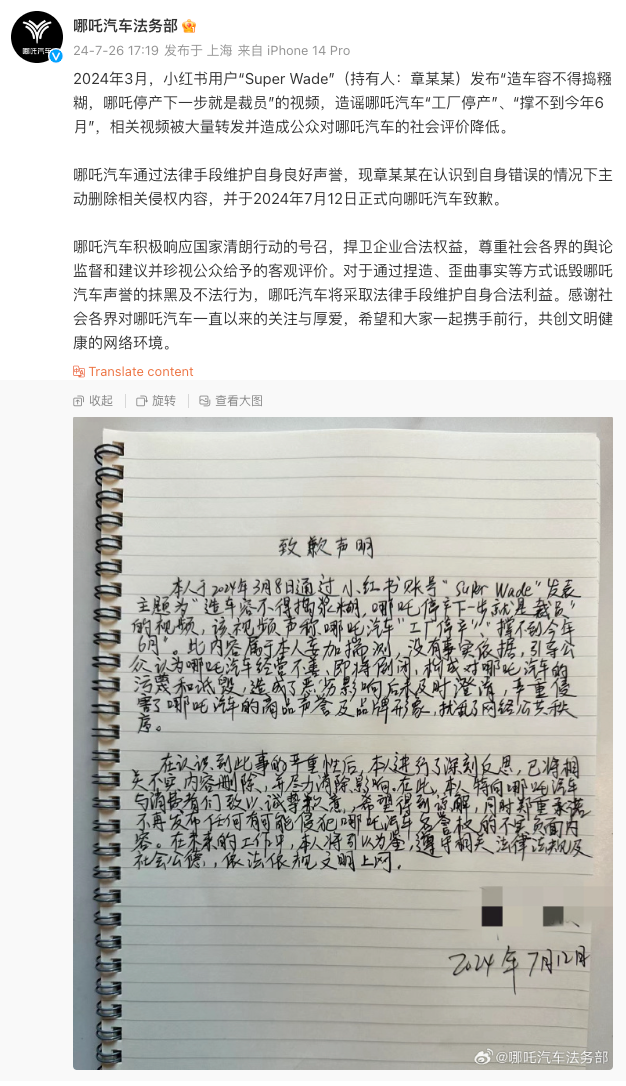 哪吒汽车法务部
哪吒汽车
24-7-26 17:19 发布于 上海 来自 iPhone 14 Pro
2024年3月，小红书用户“Super Wade”（持有人：章某某）发布“造车容不得捣糨
糊，哪吒停产下一步就是裁员”的视频，造谣哪吒汽车“工厂停产”、“撑不到今年6
月”，相关视频被大量转发并造成公众对哪吒汽车的社会评价降低。
哪吒汽车通过法律手段维护自身良好声誉，现章某某在认识到自身错误的情况下主
动删除相关侵权内容，并于2024年7月12日正式向哪吒汽车致歉。
哪吒汽车积极响应国家清朗行动的号召，捍卫企业合法权益，尊重社会各界的舆论
监督和建议并珍视公众给予的客观评价。对于通过捏造、歪曲事实等方式诋毁哪吒
汽车声誉的抹黑及不法行为，哪吒汽车将采取法律手段维护自身合法利益。感谢
社会各界对哪吒汽车一直以来的关注与厚爱，希望和大家一起携手前行，共创文明健
康的网络环境。
Translate content
收起 旋转 查看大图
致歉声明
本人于2024年3月8日通过小红书账号“Super Wade”发表
主题为“造车容不得捣浆糊，哪吒停产下一步就是裁员”
的视频，该视频声称哪吒汽车“工厂停产”“撑不到今年
6月”。此内容属于本人妄加揣测，没有事实依据，引导公
众认为哪吒汽车经营不善、即将倒闭，构成对哪吒汽车的
污蔑和诋毁，造成了恶劣影响后未及时澄清，严重侵
害了哪吒汽车的商品声誉及品牌形象，扰乱了网络公共秩
序。
在认识到此事的严重性后，本人进行了深刻反思，已将相
关不实内容删除，并尽力消除影响。在此，本人特向哪吒汽车
与消费者们致以诚挚歉意，希望得到谅解，同时郑重承诺
不再发布任何有可能侵犯哪吒汽车名誉权的不实负面内
容。在未来的工作中，本人将引以为鉴，遵守相关法律法规及
社会公德，依法依规文明上网。
2024年7月12日
@哪吒汽车法务部